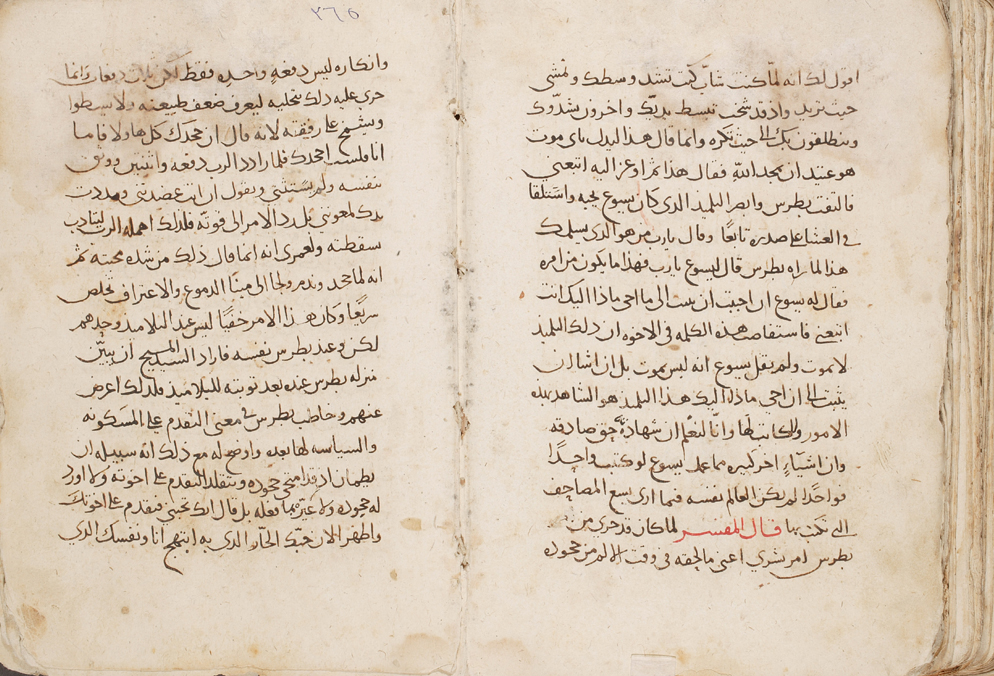 اقول لك انه لما كنت شاب كنت تشد وسطك وتمشي
حيث تريد واذ قد شخت تبسط يديك واخرون يشدوك
وينطلقون بك الى حيث تكره وانما قال هذا ليدل باي موت
هو عتيد ان يمجد الله فقال هذا ثم اوعز اليه اتبعني
فالتفت بطرس وابصر التلميذ الذي كان يسوع يحبه واستلقا
في العشا على صدره تابعًا وقال يارب من هو الذي يسلمك
هذا لما راه بطرس قال ليسوع يارب فهذا ما يكون من امره
فقال له يسوع ان احببت ان يثبت الى ما اجي ماذا اليك انت
اتبعني فاستفاضت هذه الكلمه في الاخوه ان ذلك التلميذ
لا يموت ولم يقل يسوع انه ليس يموت بل ان اشا ان
يثبت الى ان اجي ماذا اليك هذا التلميذ هو الشاهد بهذه
الامور والكاتب لها وانا لنعلم ان شهادة حق صادقه
وان اشياءً اخر كثيره مما عمل يسوع لو كتبت واحدًا
فواحدًا لم يكن العالم بنفسه فيما ارى يسع المصاحف
التي تكتب بها قال المفسر لما كان قد جرى من
بطرس امر بشري اعني ما لحقه في وقت الالم من جحوده
٢٦٥
وانكاره ليس دفعه واحده فقط لكن ثلث دفعات وانما
جرى عليه ذلك بتخليه ليعرف ضعف طبيعته ولا يسطوا
ويشمخ على رفقته لانه قال ان جحدك كل هاولا فاما
انا فلست اجحدك فلما رادد الرب دفعه واثنتين ووثق
بنفسه ولم يستثني ويقول ان انت عضدتني ومددت
يدك لمعونتي بل رد الامر الى قوته فلذلك اهمله الرب ليتادب
بسقطته ولعمرى انه انما قال ذلك من شده محبته ثم
انه لما جحد وندم ولجا الى مينا الدموع والاعتراف تخلص
سريعًا وكان هذا الامر خفيًا ليس عند التلاميذ وحدهم
لكن وعند بطرس نفسه فاراد السيد المسيح ان يبين
منزله بطرس عنده بعد توبته للتلاميذ فلذلك اعرض
عنهم وخاطب بطرس في معنى التقدم على المسكونه
والسياسه لها بعده واوضح له مع ذلك انه سبيله ان
يطمان اذ قد امتحى جحوده ويتقلد التقدم على اخوته ولا اورد
له جحوده ولا عيره بما فعله بل قال انك تحبني فتقدم على اخوتك
واظهر الان حبك الحار الذي به ابتهج انا ونفسك الذي